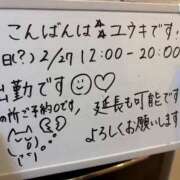 こんばんは☆ユウキです!
日(?) 2/27 12:00-20:00
出勤です☺♡
の所ご予約0です、延長も可能です
よろしくお願いします